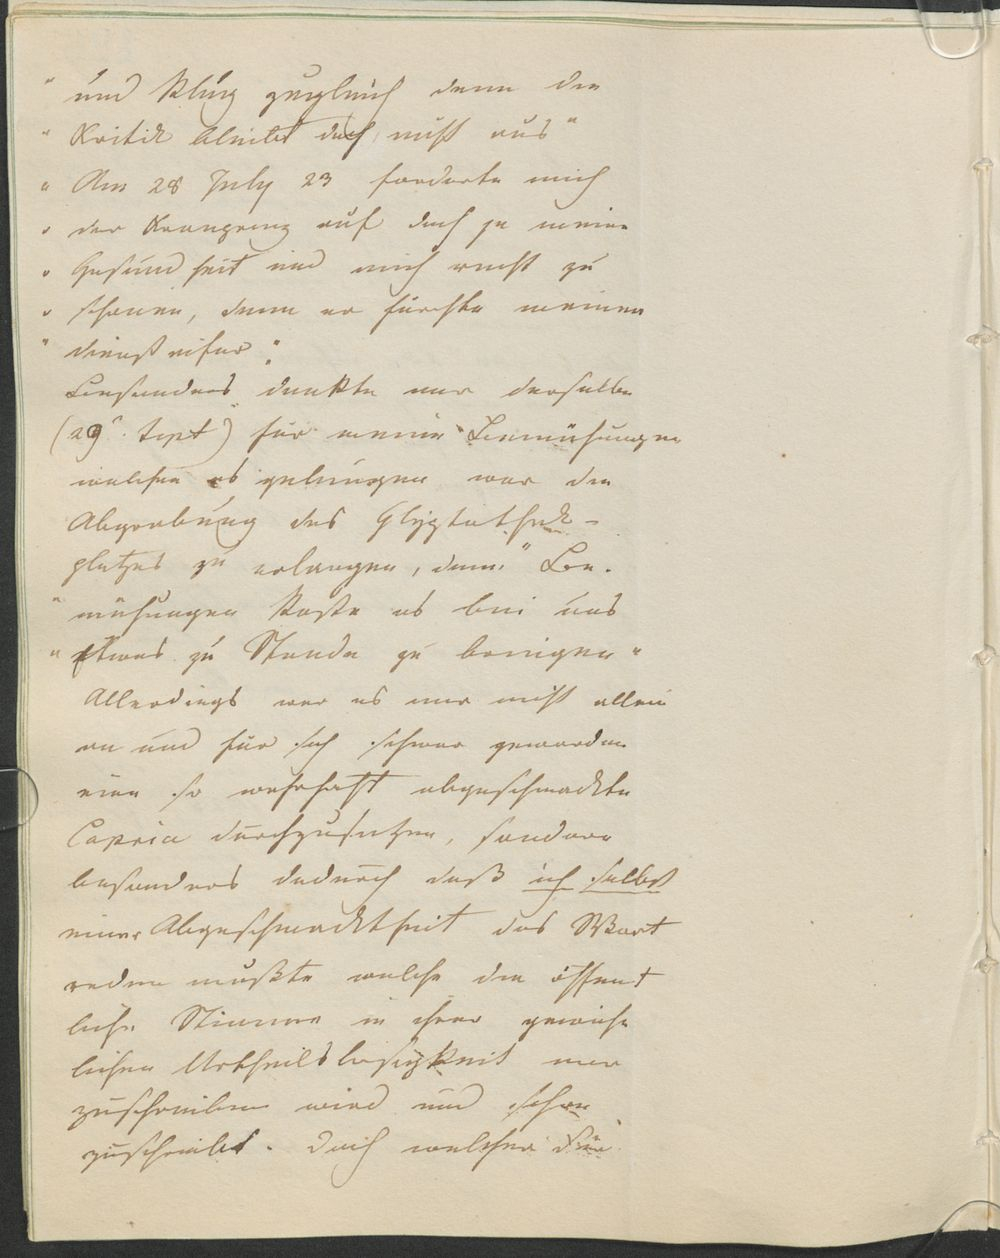 " und klug zugleich denn die
" Kritik bleibt doch nicht aus "
" Am 28 July 23 forderte mich
" der Kronprinz auf doch ja meine
" Gesundheit und mich recht zu
" schonen, denn er fürchte meinen
" Diensteifer "
Besonders dankte mir derselbe
(29t. Sept) für meine Bemühungen
welchen es gelungen war die
Abgrabung des Glyptothek-
platzes zu erlangen, denn " Be-
" mühungen koste es bei uns
" Etwas zu Stande zu bringen "
Allerdings war es mir nicht allein
an und für sich schwer geworden
eine so wahrhaft abgeschmackte
Caprice durchzusetzen, sondern
besonders dadurch daß ich selbst
einer Abgeschmacktheit das Wort
reden mußte welche die öffent
liche Stimme in ihrer
lichen Urtheilslosigkeit mir
zuschreiben wird und schon
zuschreibt. Doch welcher